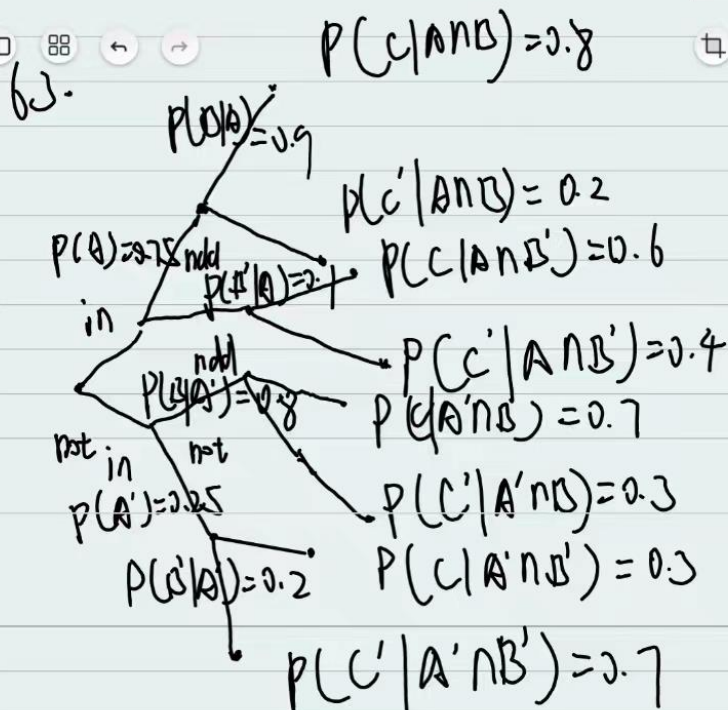 P(C|A∩B)=0.8
63.
P(B|A)=0.9
P(C'|A∩B)=0.2
P(A)=0.75 ndd
P(C|A∩B')=0.6
P(B'|A)=0.1
in
P(C'|A∩B')=0.4
ndd
P(B|A')=0.8
P(C|A'∩B)=0.7
not in
not
P(A')=0.25
P(C'|A'∩B)=0.3
P(B'|A')=0.2
P(C|A'∩B')=0.3
P(C'|A'∩B')=0.7